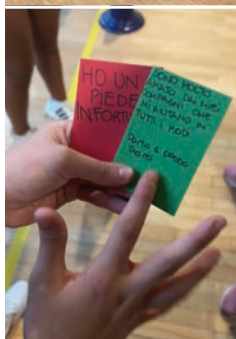 HO UN
PIEDE
INFORTU
SONO MOLTO
AMATO DAI MIEI
COMPAGNI CHE
MI AIUTANO IN
TUTTI I MODI